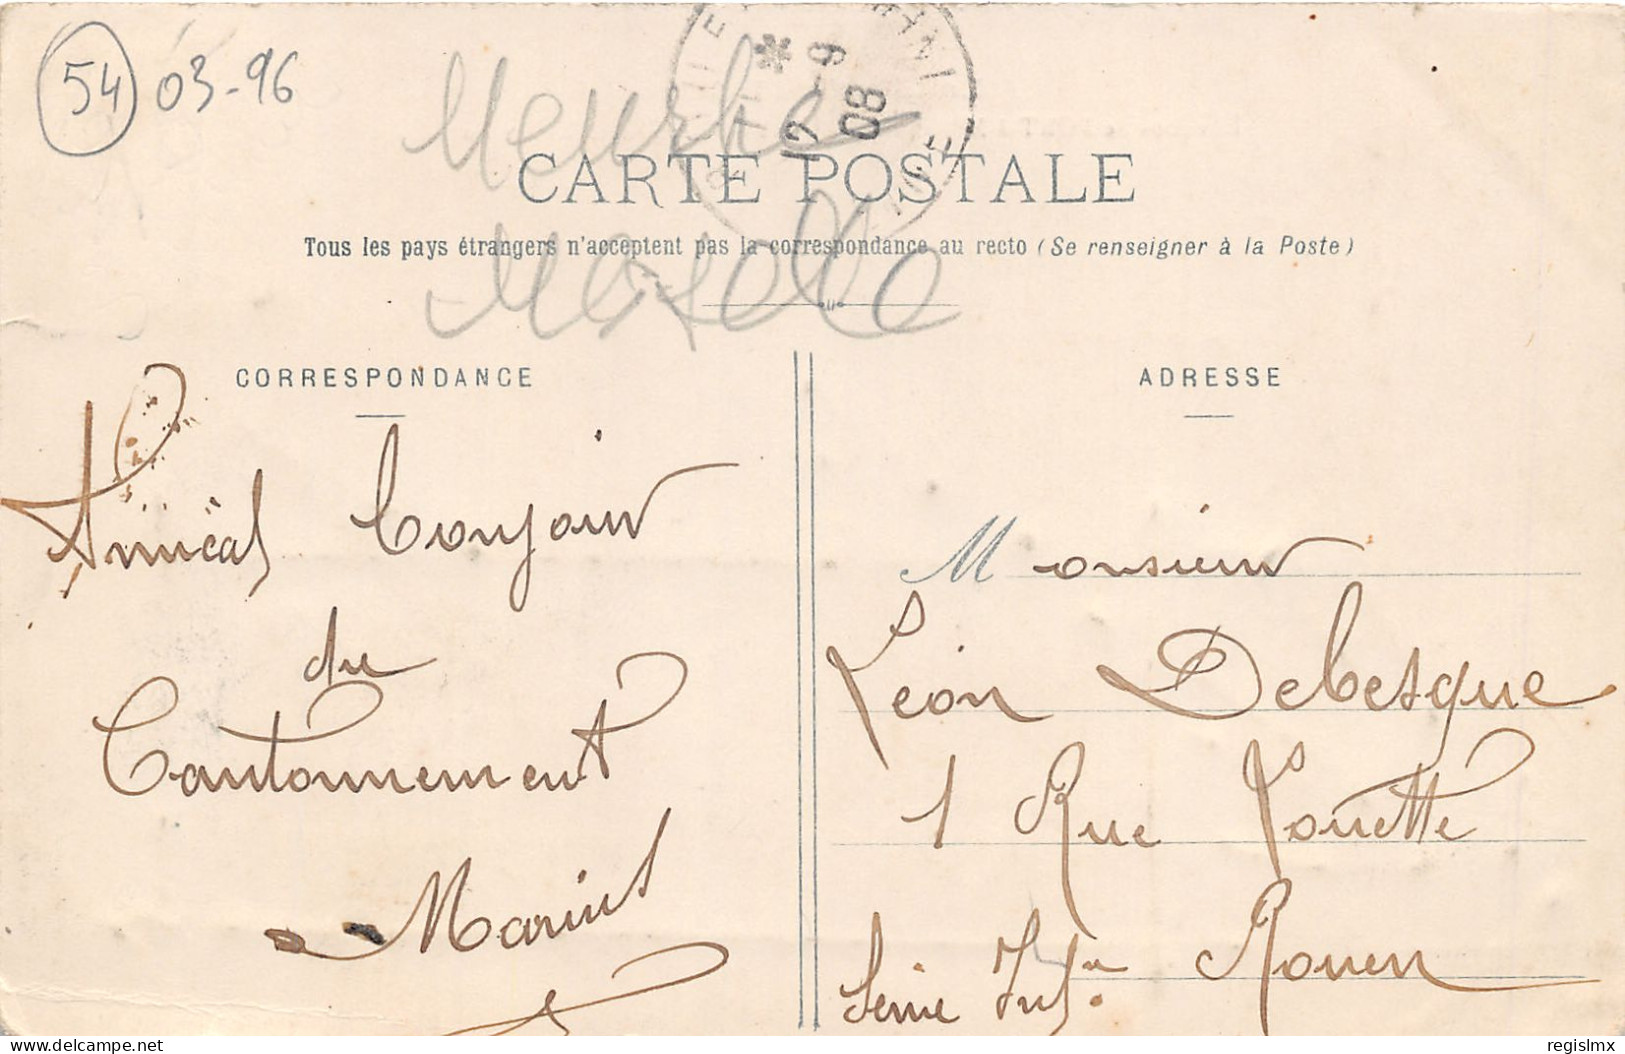 54 03-96
Meurthe
* 17 -9
08
CARTE POSTALE
Tous les pays étrangers n'acceptent pas la correspondance au recto (Se renseigner à la Poste)
Moselle
CORRESPONDANCE
Amical Bonjour
du
Cantonnement
Marius
ADRESSE
Monsieur
Léon Debesque
1 Rue
Rouen
Seine Infre
delcampe.net
regislmx